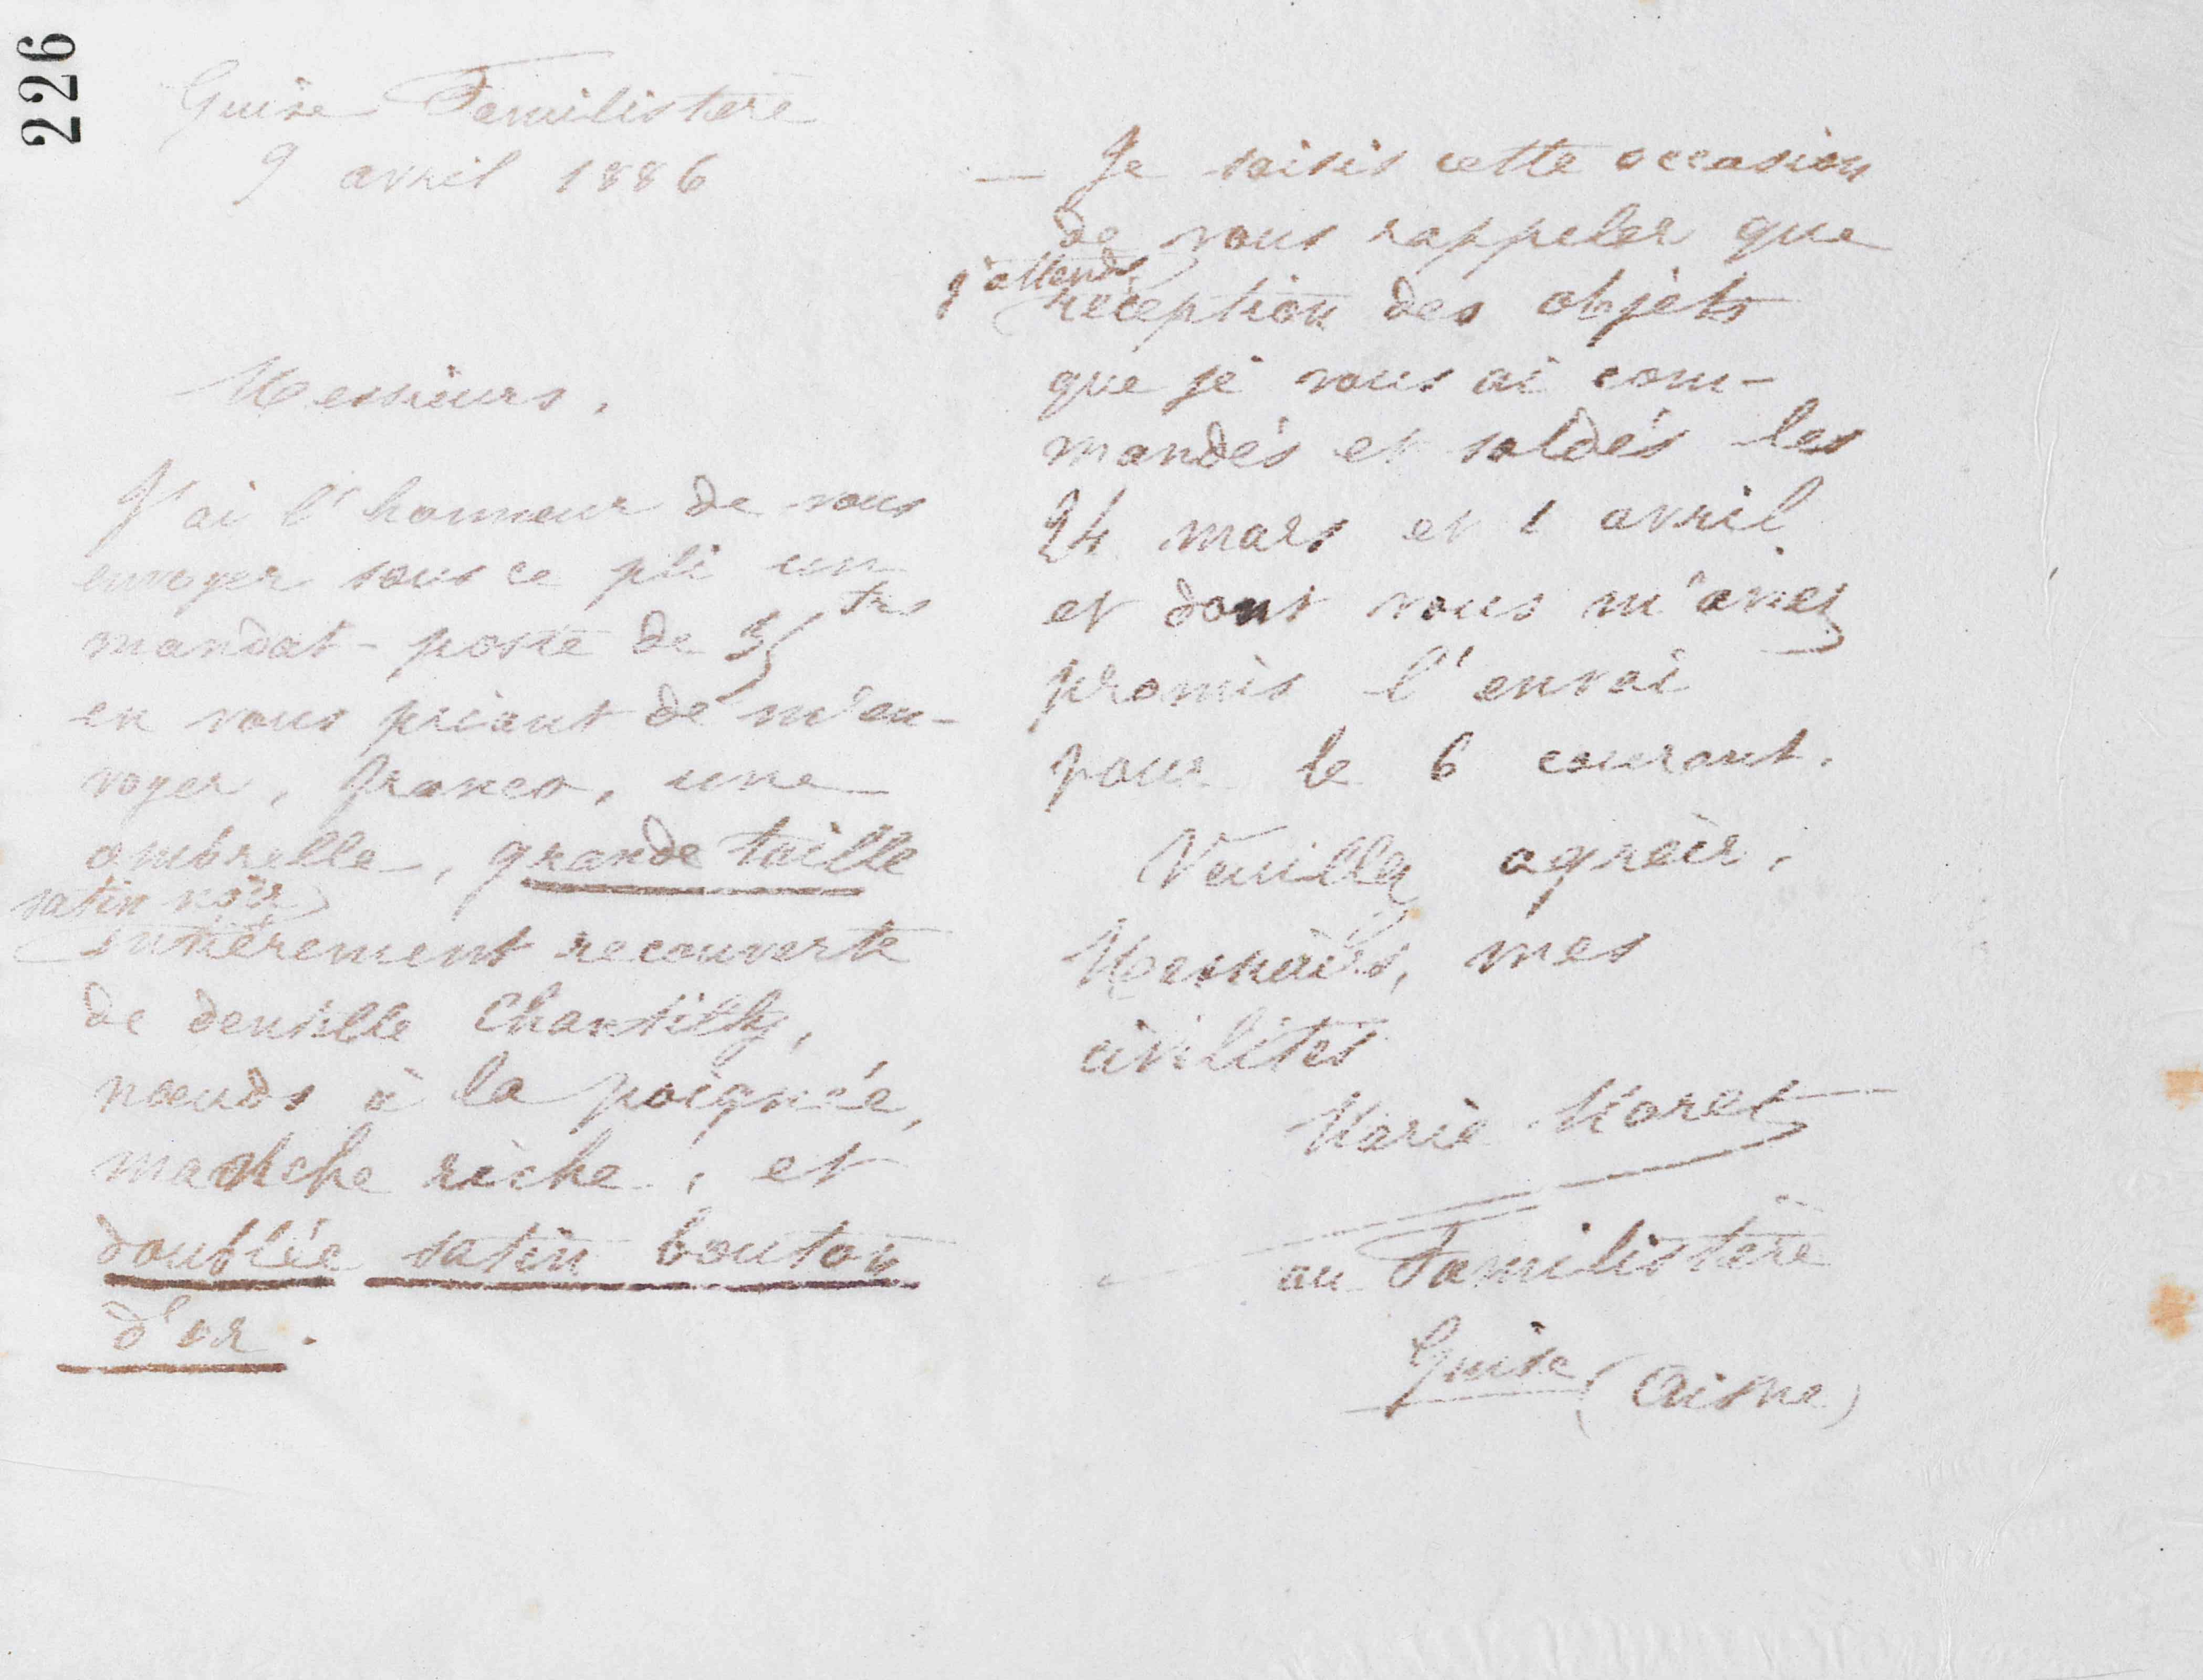 226
Guise Familistère
9 avril 1886
Messieurs,
J'ai l'honneur de vous
envoyer sous ce pli un
mandat-poste de frs
en vous priant de m'en-
voyer, franco, une
ombrelle, grande taille
satin noir
entièrement recouverte
de dentelle Chantilly,
nœuds à la poignée,
manche riche, et
doublée satin bouton
d'or.
— Je saisis cette occasion
de vous rappeler que
j'attends
réception des objets
que je vous ai com-
mandés et soldés les
24 mars et 1 avril
et dont vous m'aviez
promis l'envoi
pour le 6 courant.
Veuillez agréer,
Messieurs, mes
civilités
Marie Moret
au Familistère
Guise (Aisne)